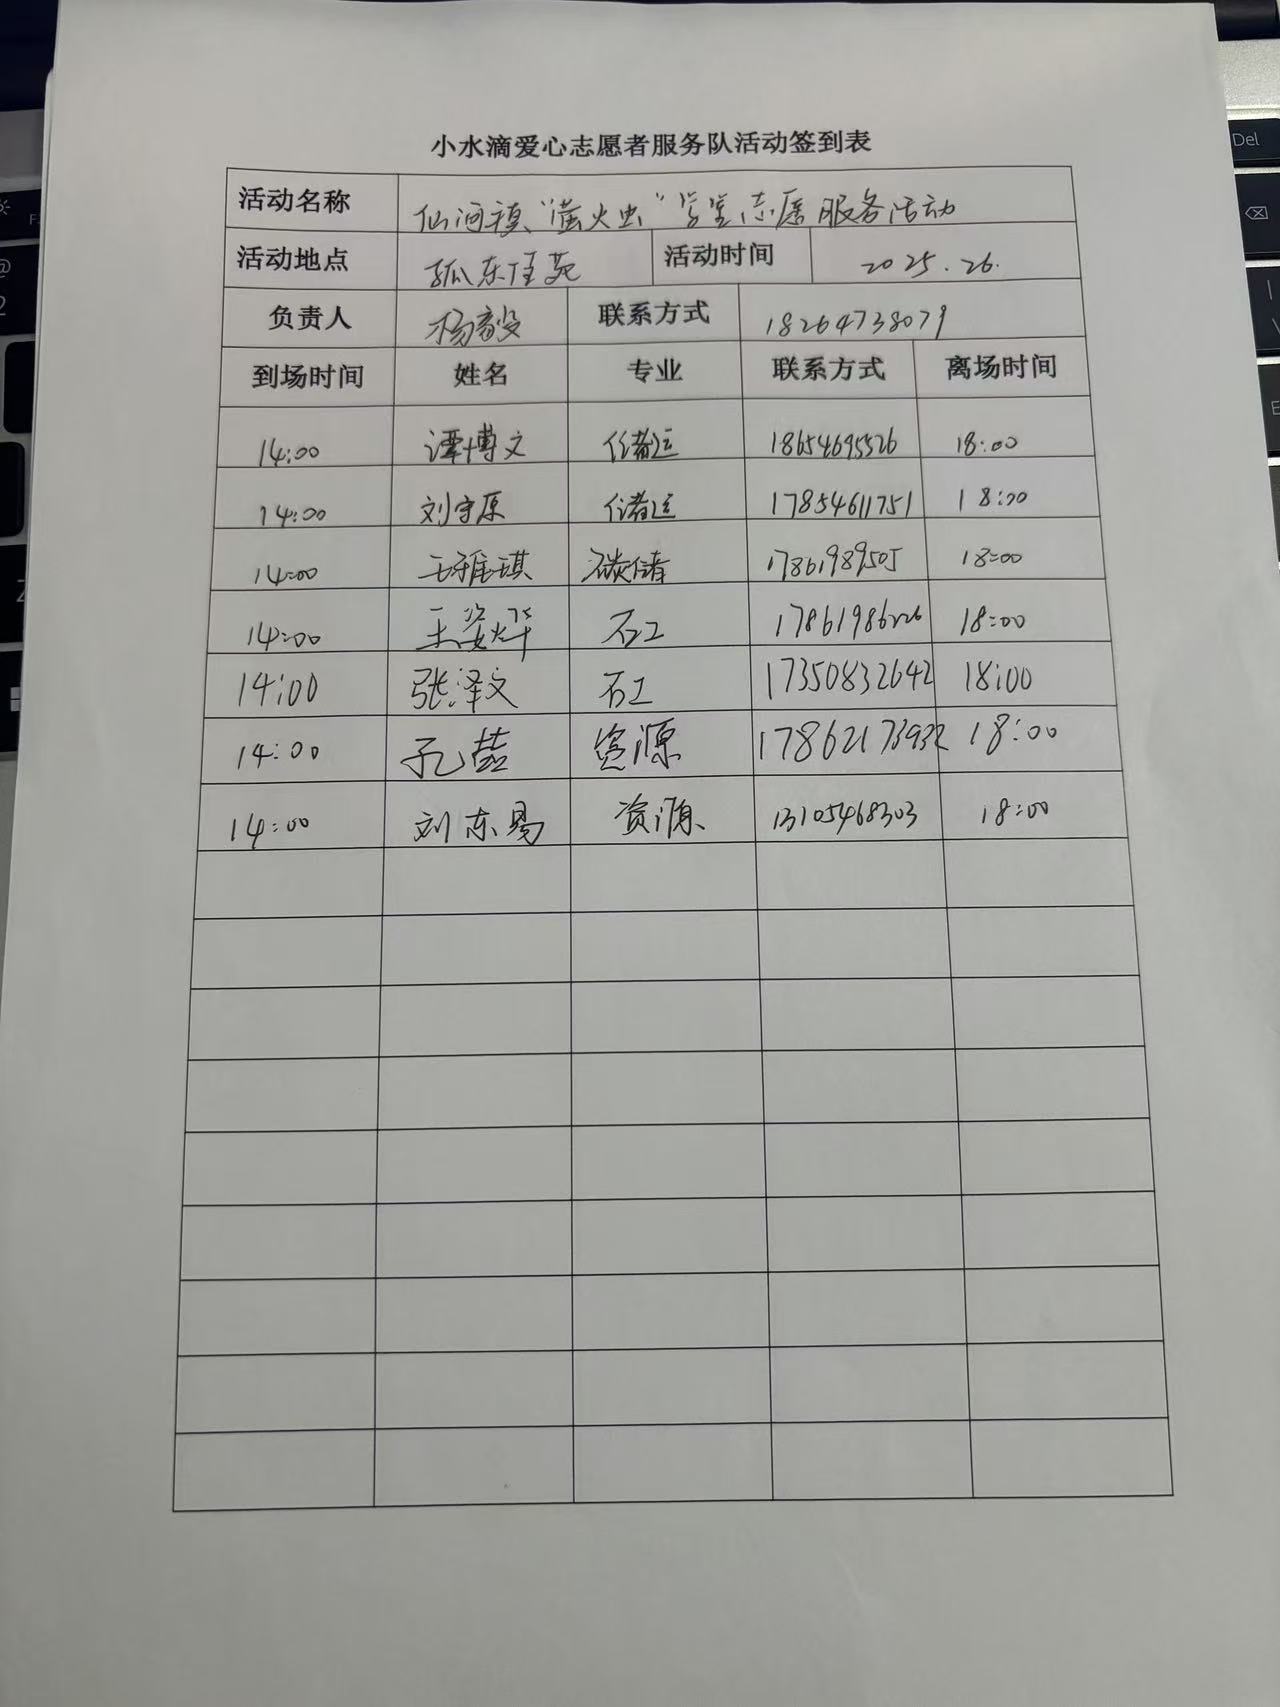 小水滴爱心志愿者服务队活动签到表
活动名称 仙河镇"萤火虫"学堂志愿服务活动
活动地点 孤东佳苑 活动时间 2025.26.
负责人 杨毅 联系方式 18264738079
到场时间 姓名 专业 联系方式 离场时间
14:00 谭博文 储运 18654695526 18:00
14:00 刘宇原 储运 17854611751 18:00
14:00 王雅琪 碳储 17861989505 18:00
14:00 王姿烨 石工 17861986226 18:00
14:00 张泽文 石工 17350832642 18:00
14:00 孔喆 资源 18:00
14:00 刘东易 资源 13105468303 18:00
Del